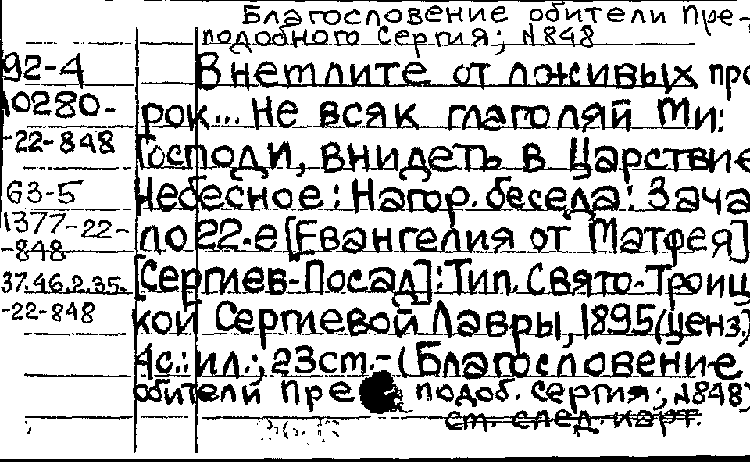 Благословение обители Пре-
подобного Сергия; №848
92-4 Внемлите от лживых про
10280- рок... Не всяк глаголяй Ми:
-22-848 Господи, внидеть в Царствие
63-5 Небесное: Нагор. беседа: Зача
1377-22- ло 22-е [Евангелия от Матфея]
-848
37.46.2.35. [Сергиев-Посад]: Тип. Свято-Троиц
-22-848 кой Сергиевой Лавры, 1895 (ценз)
4с.: ил.; 23см.- (Благословение
обители Пре подоб. Сергия; №848)
см. след. карт.